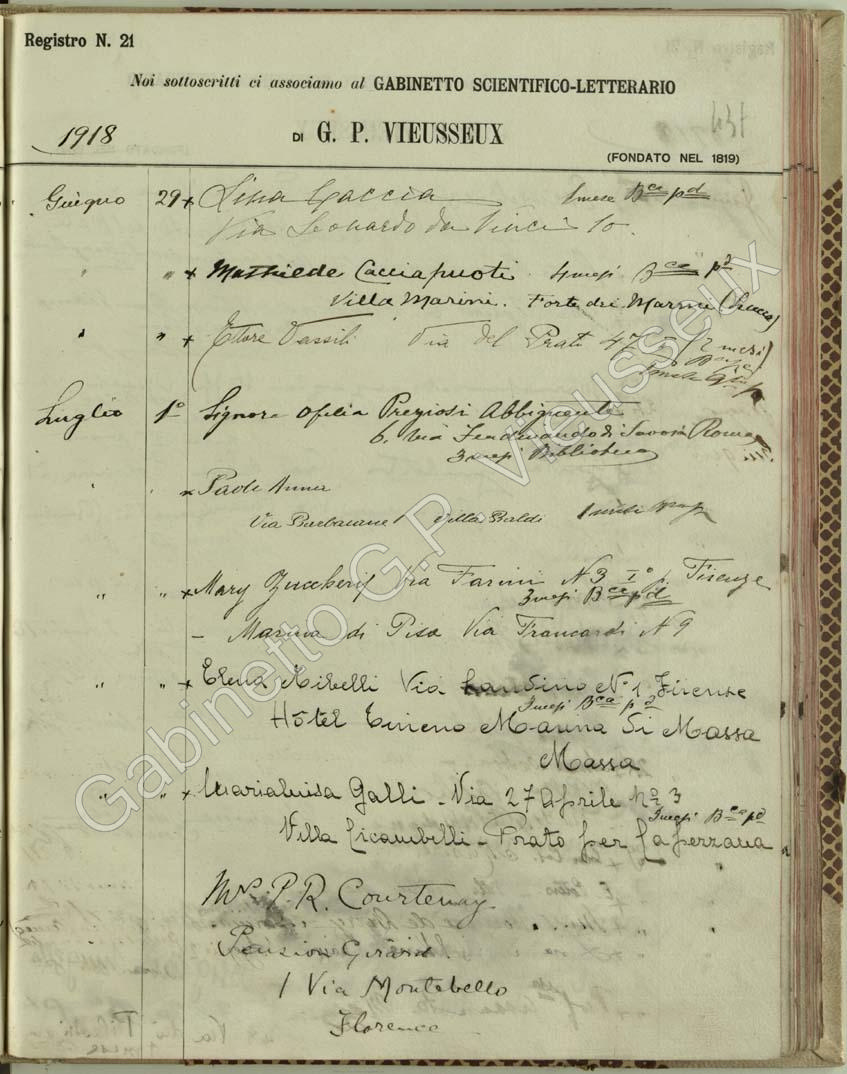 Registro N. 21
Noi sottoscritti ci associamo al GABINETTO SCIENTIFICO-LETTERARIO
1918
DI G. P. VIEUSSEUX
(FONDATO NEL 1819)
Giugno 29 x Lina Caccia 1 mese Bca pd
Via Leonardo da Vinci 10.
" " x Mathilde Cacciapuoti 4 mesi Bca pd
Villa Marini. Forte dei Marmi (Lucca)
" " x Ettore Vassili Via del Prato 47 (2 mesi)
Luglio 1º Signora Ofelia Preziosi Abbignente
6, Via Ferdinando di Savoia Roma
3 mesi Biblioteca
" " x Paoli Anna
Via Barbacane Villa Baldi 1 mese
" " x Mary Via Farini N 3 Iº p. Firenze
3 mesi Bca pd
– Marina di Pisa Via Francardi N 9
" " x Elena Mibelli Via Landino Nº 1 Firenze
3 mesi Bca pd
Hôtel Tirreno Marina di Massa
Massa
" " x Marialuisa Galli - Via 27 Aprile No 3
3 mesi Bca pd
Villa - Prato per
Mrs. P. R. Courtenay
Pension Girard
1 Via Montebello
Florence
Gabinetto G.P. Vieusseux